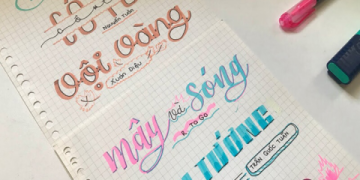 Nguyễn Tuân
Vội Vàng
Xuân Diệu
mây và sóng
R. Ta Go
TƯỚNG
TRẦN QUỐC TUẤN